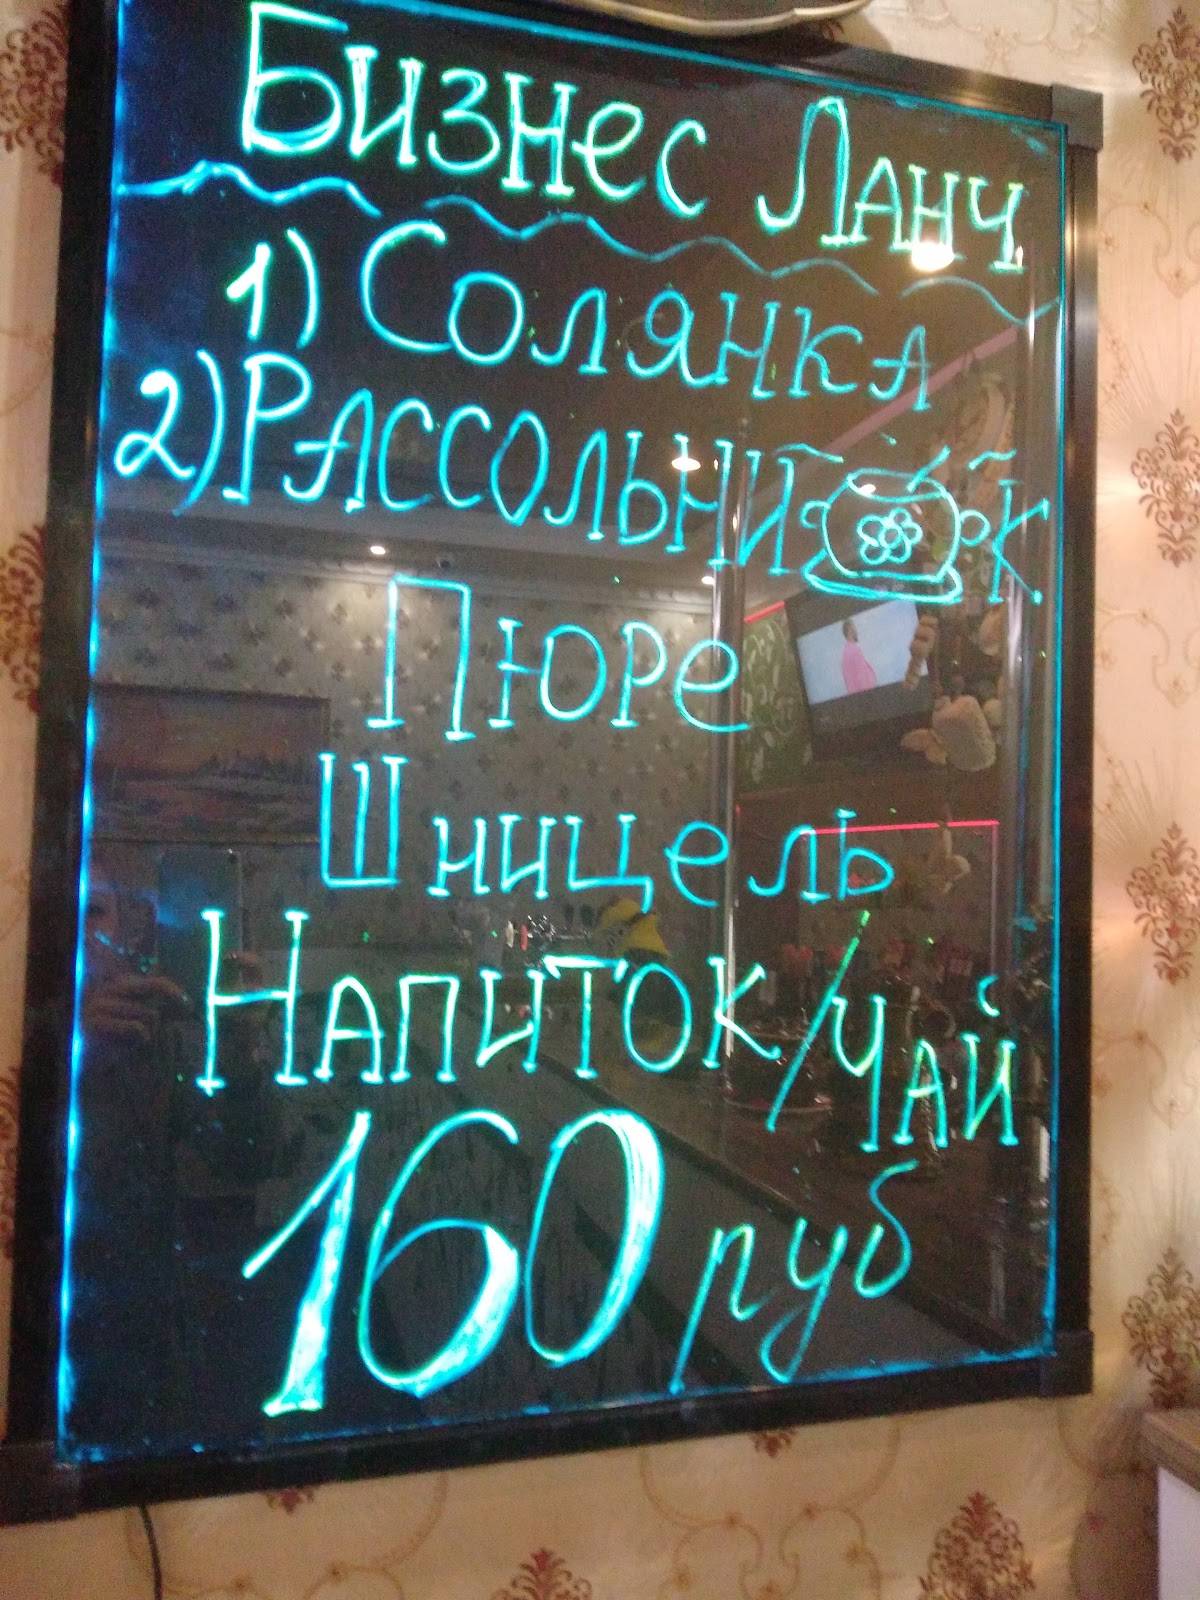 Бизнес Ланч
1) Солянка
2) Рассольник
Пюре
Шницель
Напиток/Чай
160 руб